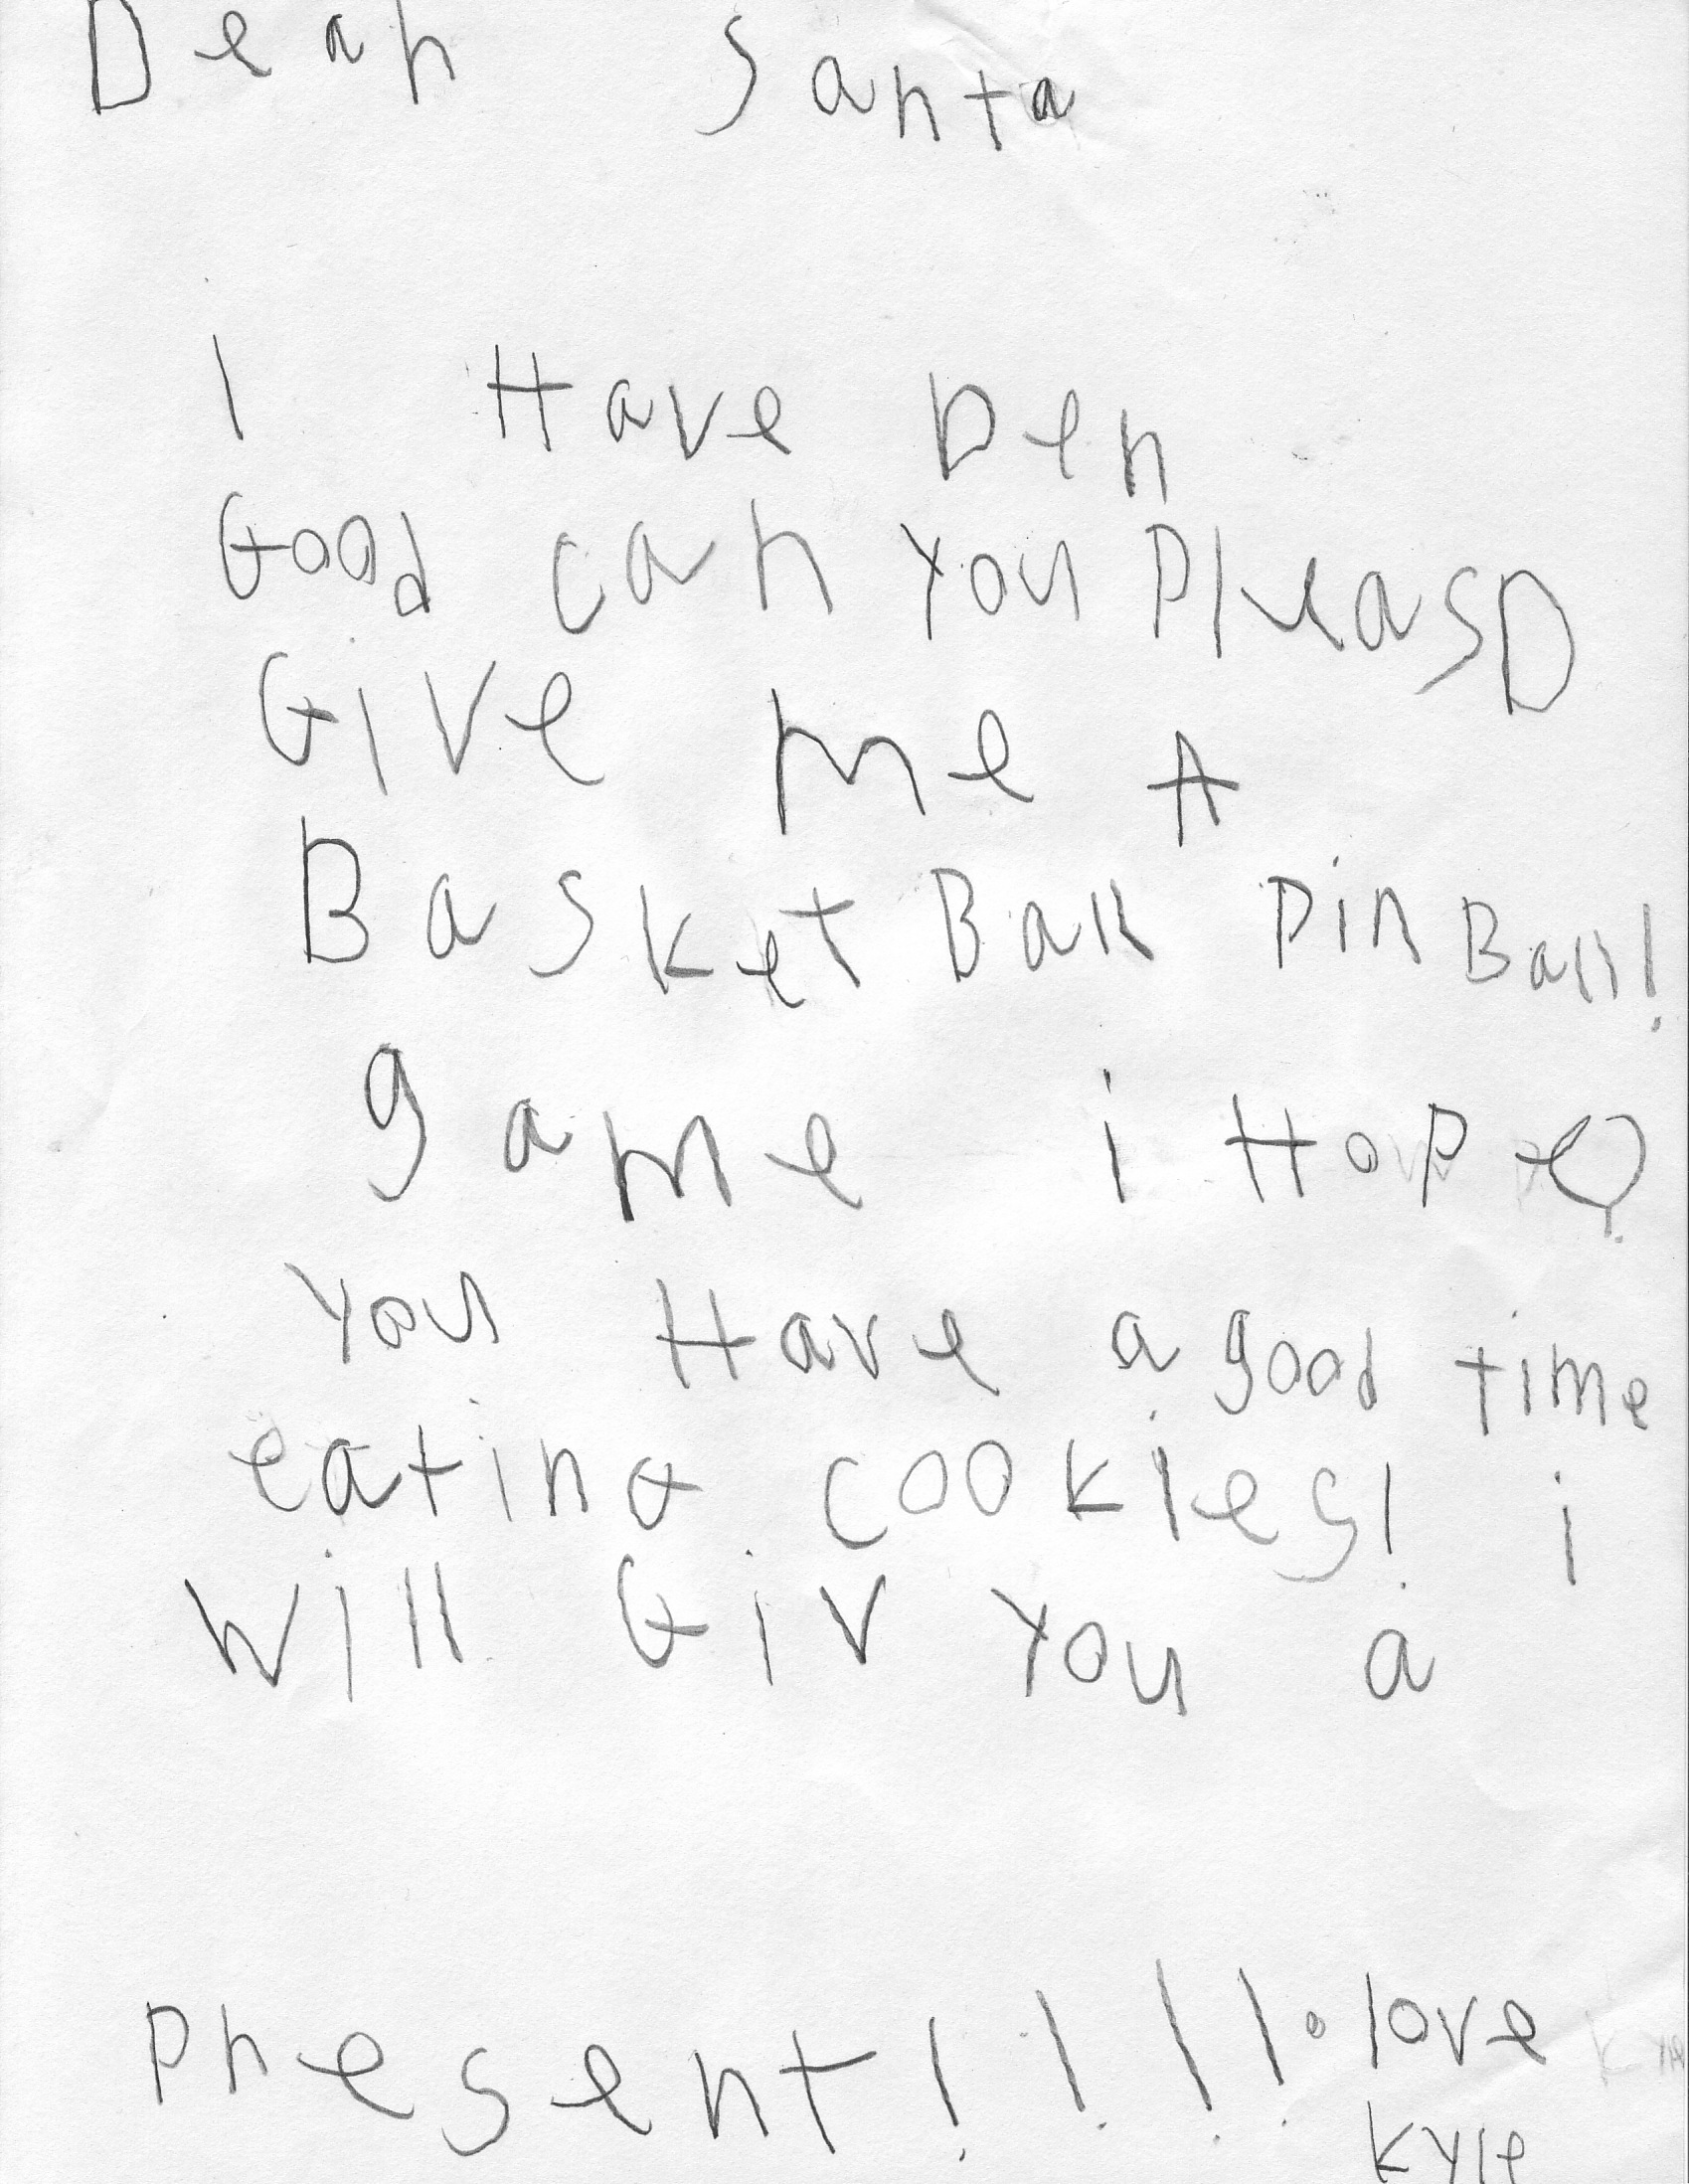 Dear Santa
I Have Ben
Good can you PleasD
Give me A
BasketBall PinBall!
game i Hope
you Have a good time
eatinG cookies! i
will Giv you a
Present!!!! love
Kyle